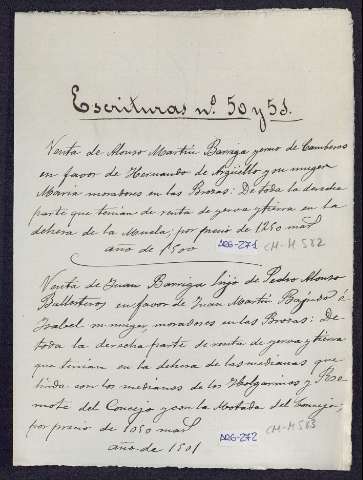 Escrituras nº. 50 y 51.
Venta de Alonso Martín Barriga yerno de Camberos
en favor de Hernando de Argüello y su muger
María moradores en las Brozas: De toda la derecha
parte que tenian de renta de yerva y tierra en la
dehesa de la Muela; por precio de 1250 mas
año de 1500 ARG-271 CM-M 582
Venta de Juan Barriga hijo de Pedro Alonso
Ballesteros en favor de Juan Martín é
Isabel su muger, moradores en las Brozas: De
toda la derecha parte de renta de yerva y tierra
que tenian en la dehesa de las medianas que
linda con las medianas de los Holguines y
del Concejo y con la del Concejo;
por precio de 1050 mas ARG-272 CM-M 583
año de 1501